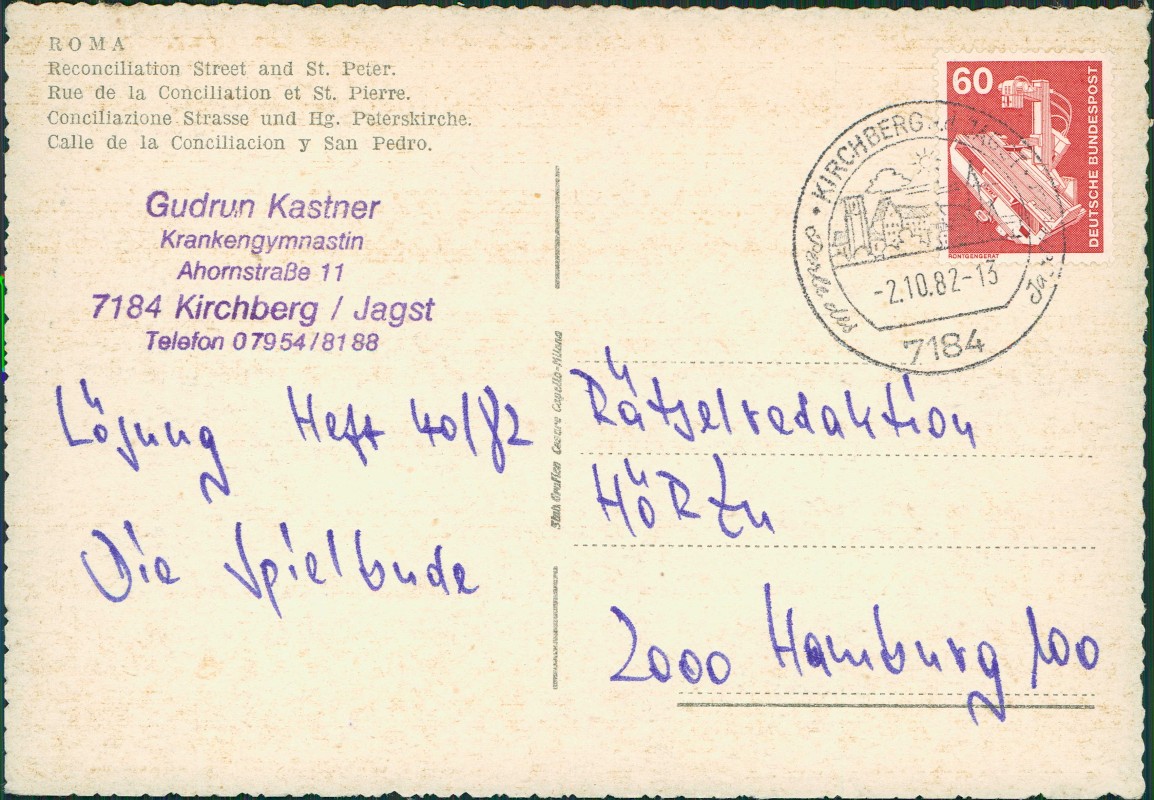 ROMA
Reconciliation Street and St. Peter.
Rue de la Conciliation et St. Pierre.
Conciliazione Strasse und Hg. Peterskirche.
Calle de la Conciliacion y San Pedro.
Gudrun Kastner
Krankengymnastin
Ahornstraße 11
7184 Kirchberg / Jagst
Telefon 07954/8188
Lösung Heft 40/82
Die Spielbude
60
DEUTSCHE BUNDESPOST
RÖNTGENGERÄT
KIRCHBERG JAGST
Perle des
-2.10.82-13
7184
Cesare Capello-Milano
Rätselredaktion
HÖRZu
2000 Hamburg 100